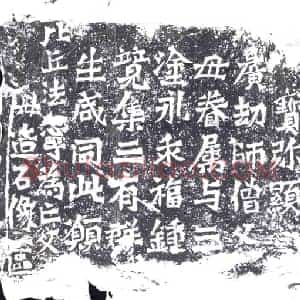 寶弥顯
廣劫師僧父
母眷屬与三
塗永乖福鍾
竟集三有群
生咸同此願
比丘法寧為亡父
母造石像區